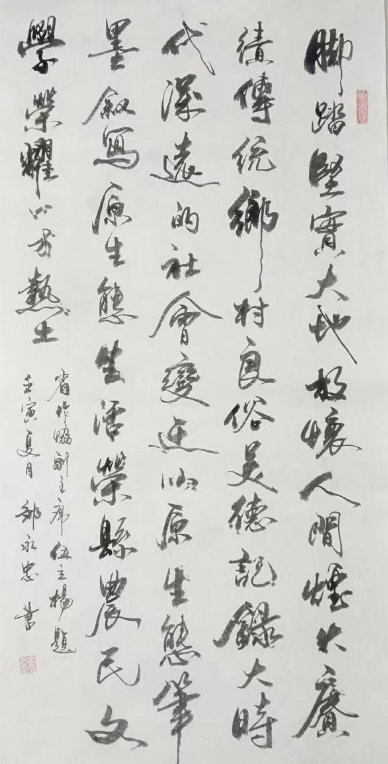 腳踏堅實大地放懷人間煙火賡
續傳統鄉村良俗美德記錄大時
代深遠的社會變遷以原生態筆
墨叙寫原生態生活榮縣農民文
學榮耀此方熱土
省作協副主席伍立楊題
壬寅夏月 鄒永忠書